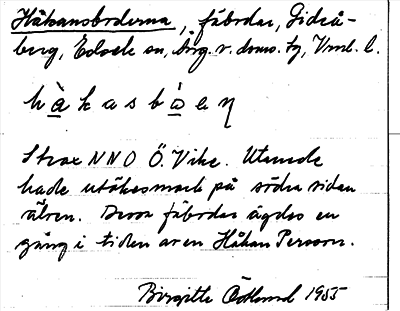 Håkansboderna, fäbodar, Lidså-
berg, Edsek sn, Älvd. v. doms. tg, Vrml. l.
h à k a s b ò a ɳ
Strax NNO Ö. Vike. Utanede
hade utöksmark på södra sidan
älven. Dessa fäbodar ägdes en
gång i tiden av en Håkan Persson.
Birgitta Ödlund 1955